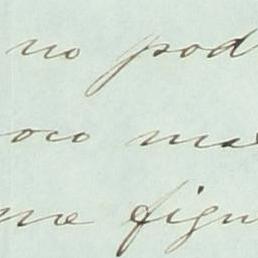 no pod
oco ma
me figu